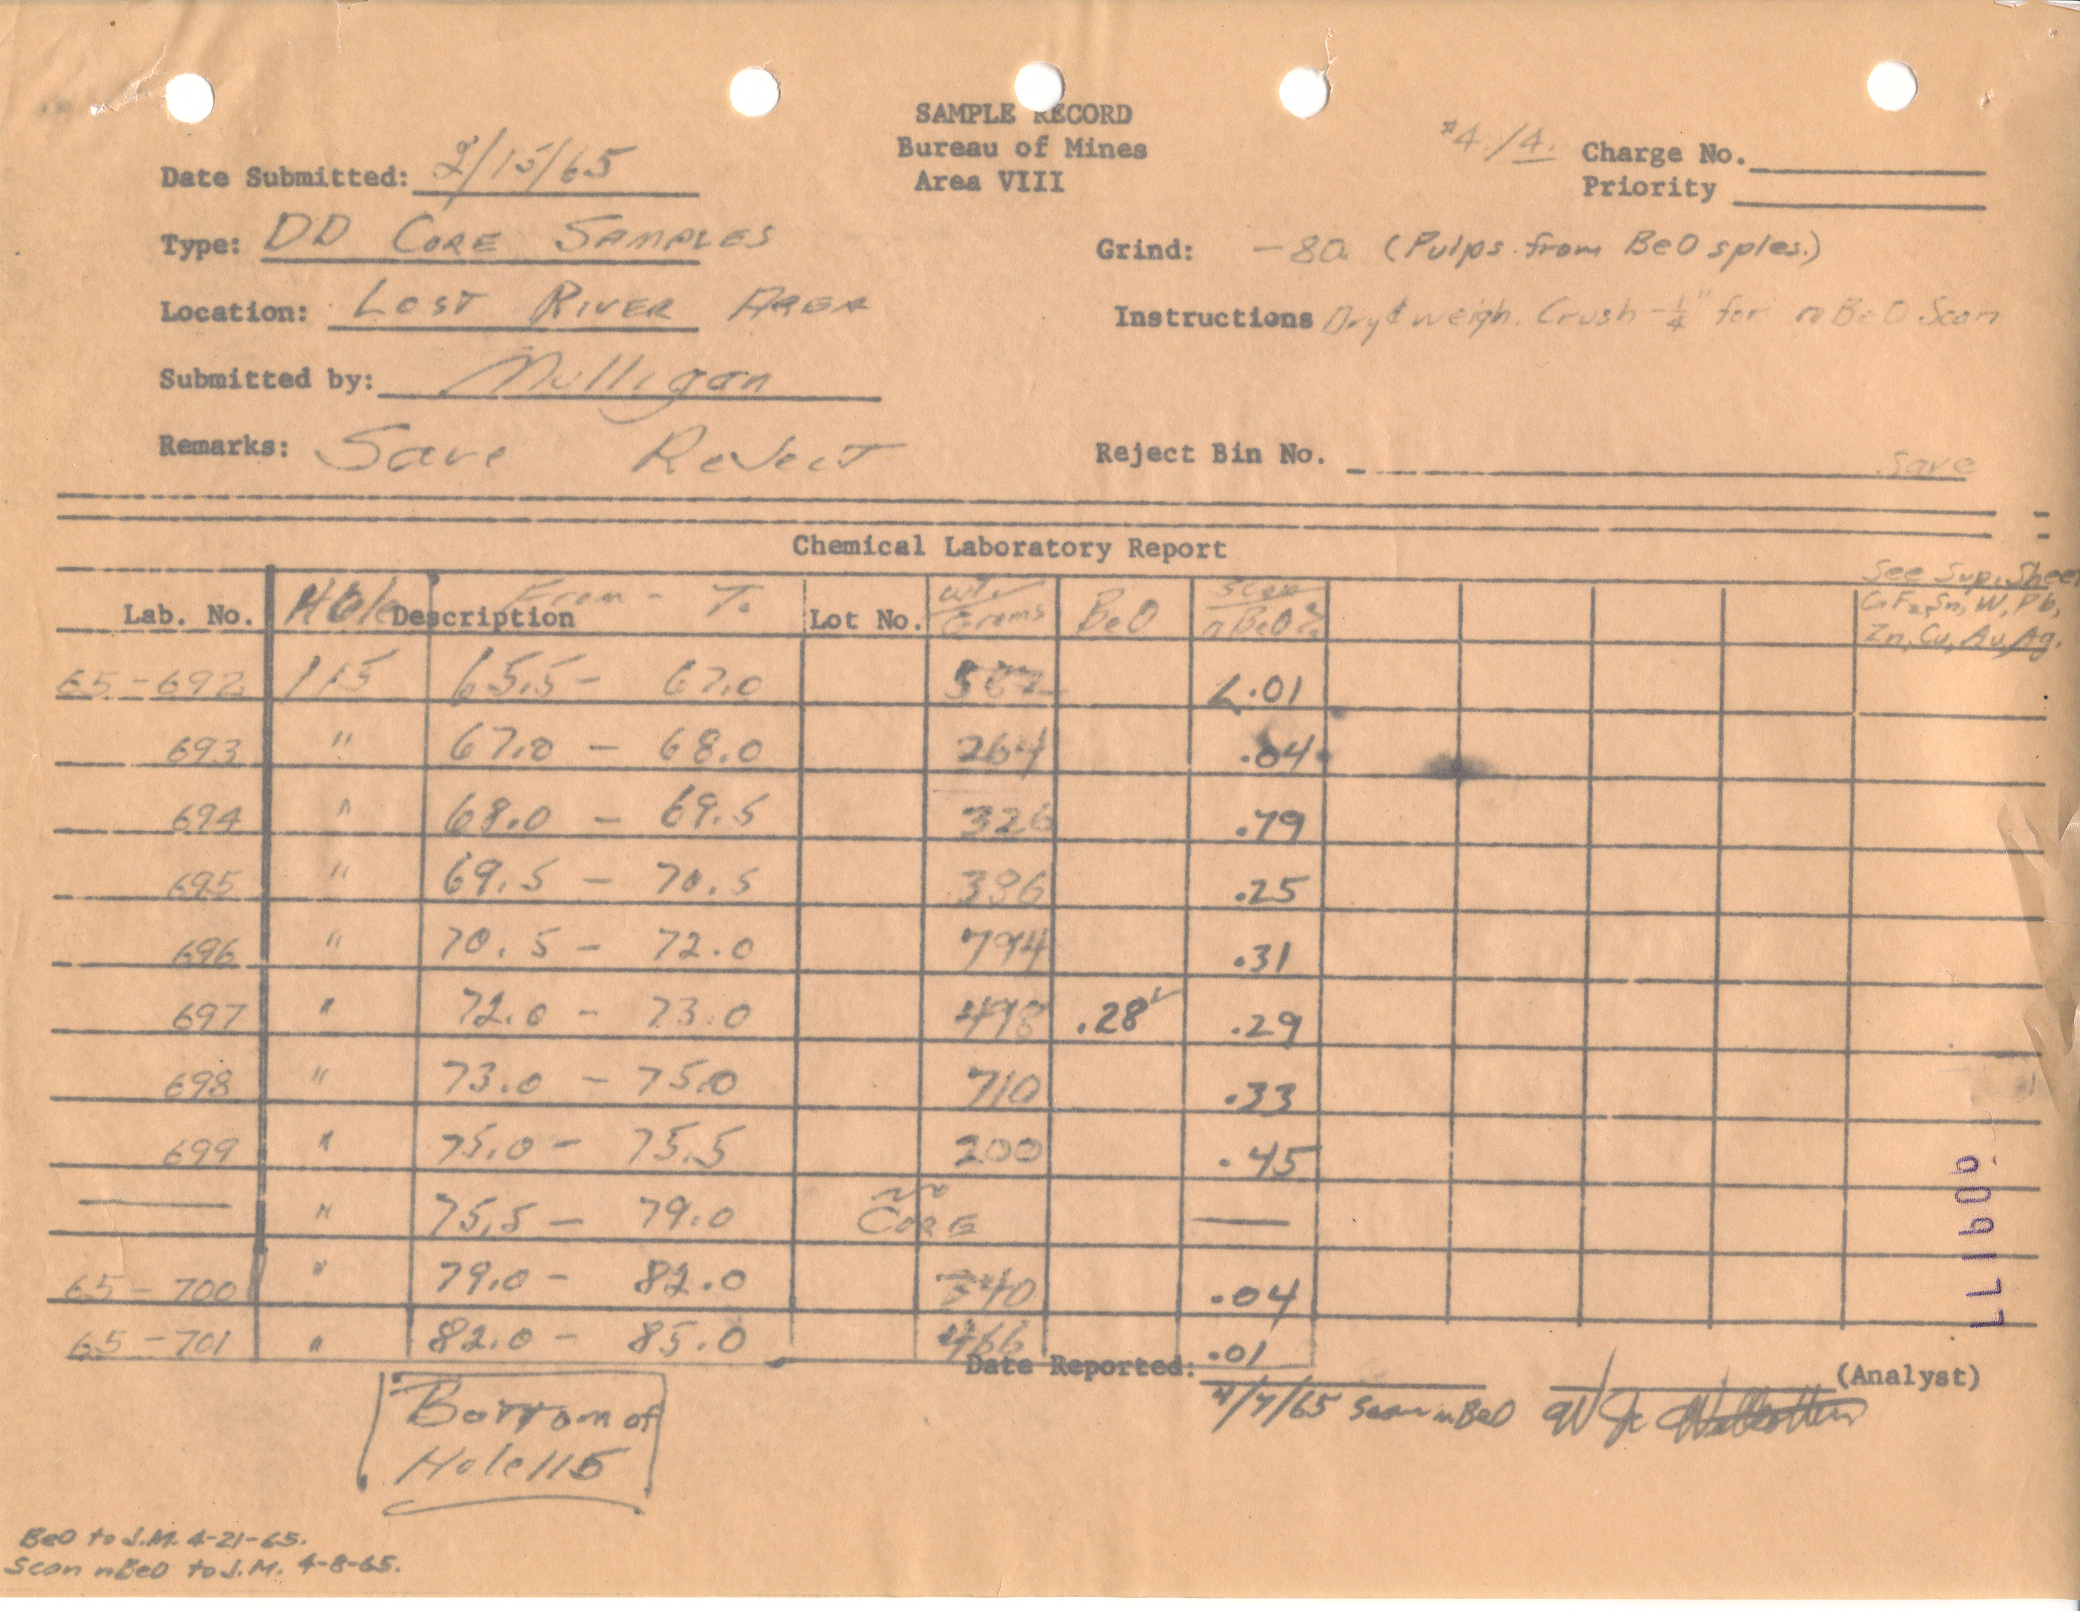 SAMPLE RECORD
Bureau of Mines
Area VIII
#4./4.
Charge No.
Priority
Date Submitted: 2/15/65
Type: DD CORE SAMPLES
Grind: -80 (Pulps from BeO sples.)
Location: LOST RIVER AREA
Instructions Dry & weigh. Crush -1/4" for nBeO Scan
Submitted by: Mulligan
Remarks: Save Reject
Reject Bin No. Save
Chemical Laboratory Report
See Sup. Sheet
CaF2, Sn, W, Pb,
Zn, Cu, Au, Ag.
Lab. No. Hole Description From - To Lot No. Wt. Grams BeO Scan nBeO %
65-692 115 65.5 - 67.0 587 <.01
693 " 67.0 - 68.0 264 .04
694 " 68.0 - 69.5 326 .79
695 " 69.5 - 70.5 386 .25
696 " 70.5 - 72.0 794 .31
697 " 72.0 - 73.0 498 .28✓ .29
698 " 73.0 - 75.0 710 .33
699 " 75.0 - 75.5 200 .45
— " 75.5 - 79.0 no CORE —
65-700 " 79.0 - 82.0 340 .04
65-701 " 82.0 - 85.0 466 .01
Date Reported: 4/7/65 Scan nBeO
(Analyst)
Bottom of
Hole 115
BeO to J.M. 4-21-65.
Scan nBeO to J.M. 4-8-65.